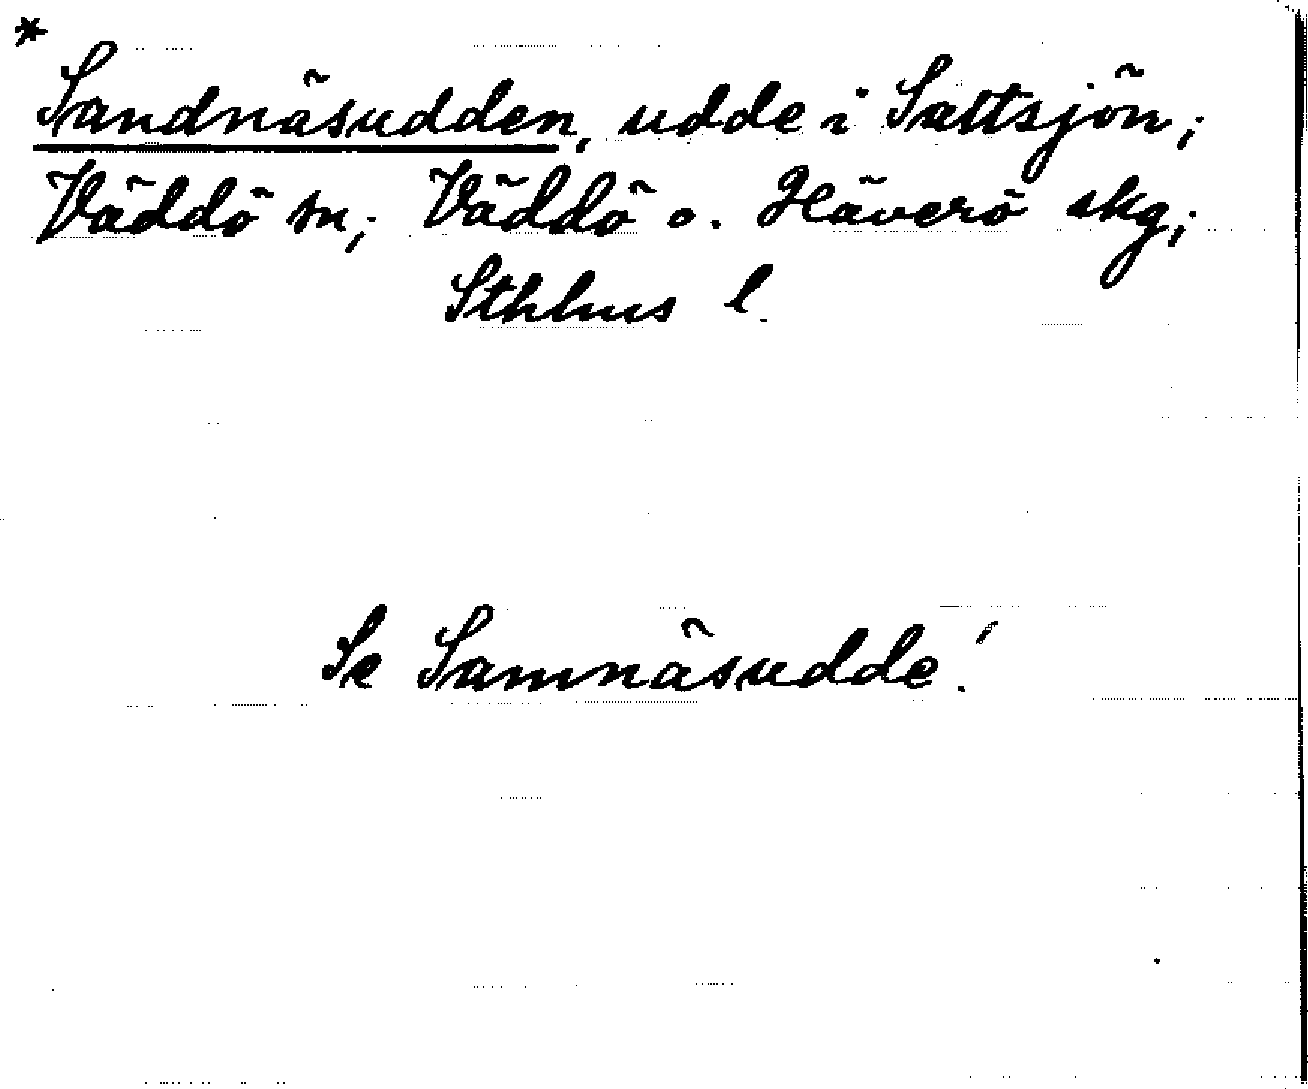 *
Sandnäsudden, udde i Saltsjön;
Väddö sn; Väddö o. Häverö skg;
Sthlms l.
Se Samnäsudde!